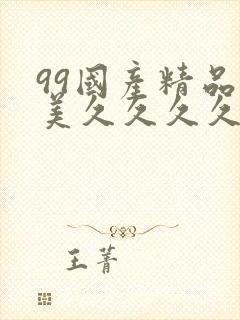 99國産精品
美久久久久
王菁